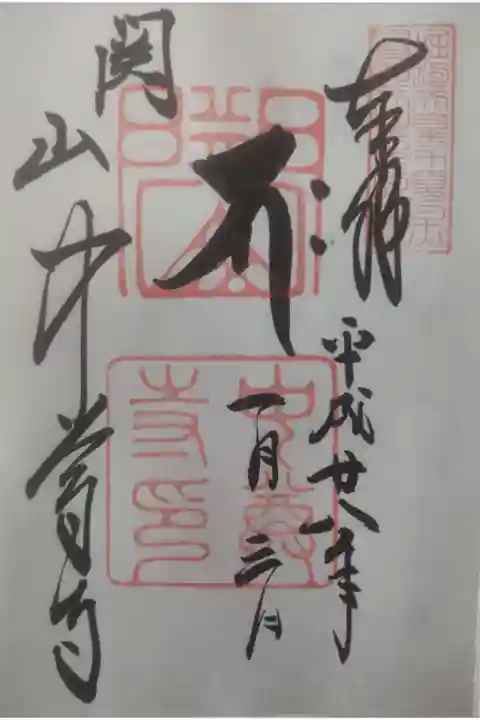 奉拝
平成廿八年
一月三日
関山中尊寺
中尊
寺印